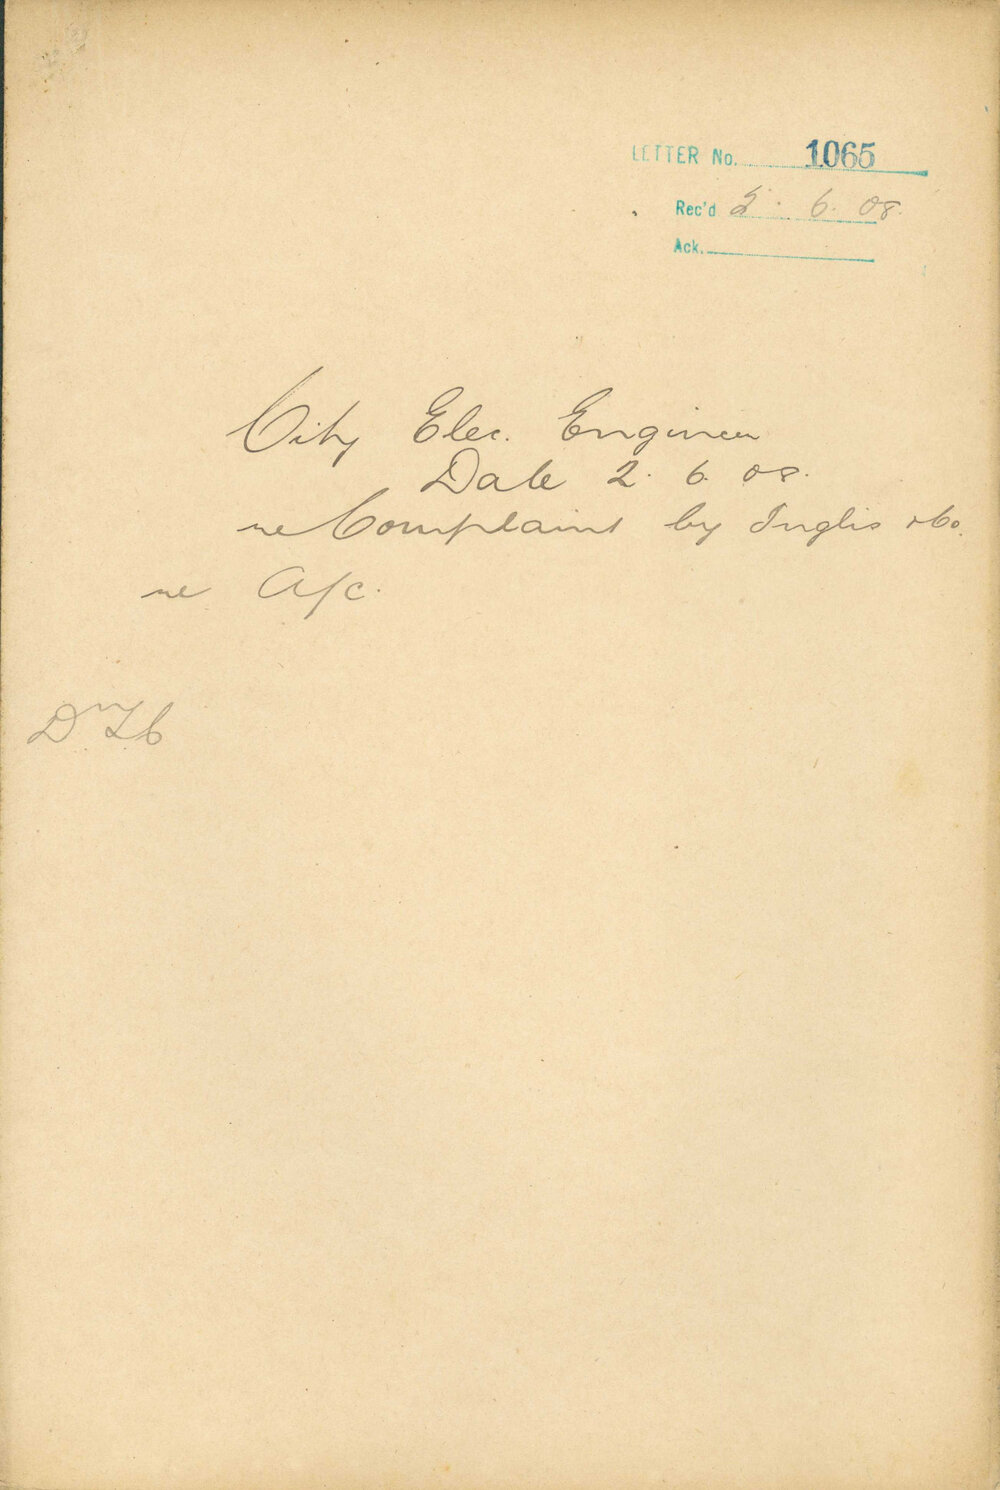 LETTER No. 1065
Rec'd 2. 6. 08.
Ack.
City Elec. Engineer
Date 2. 6. 08.
re Complaint by Inglis & Co.
re A/c.